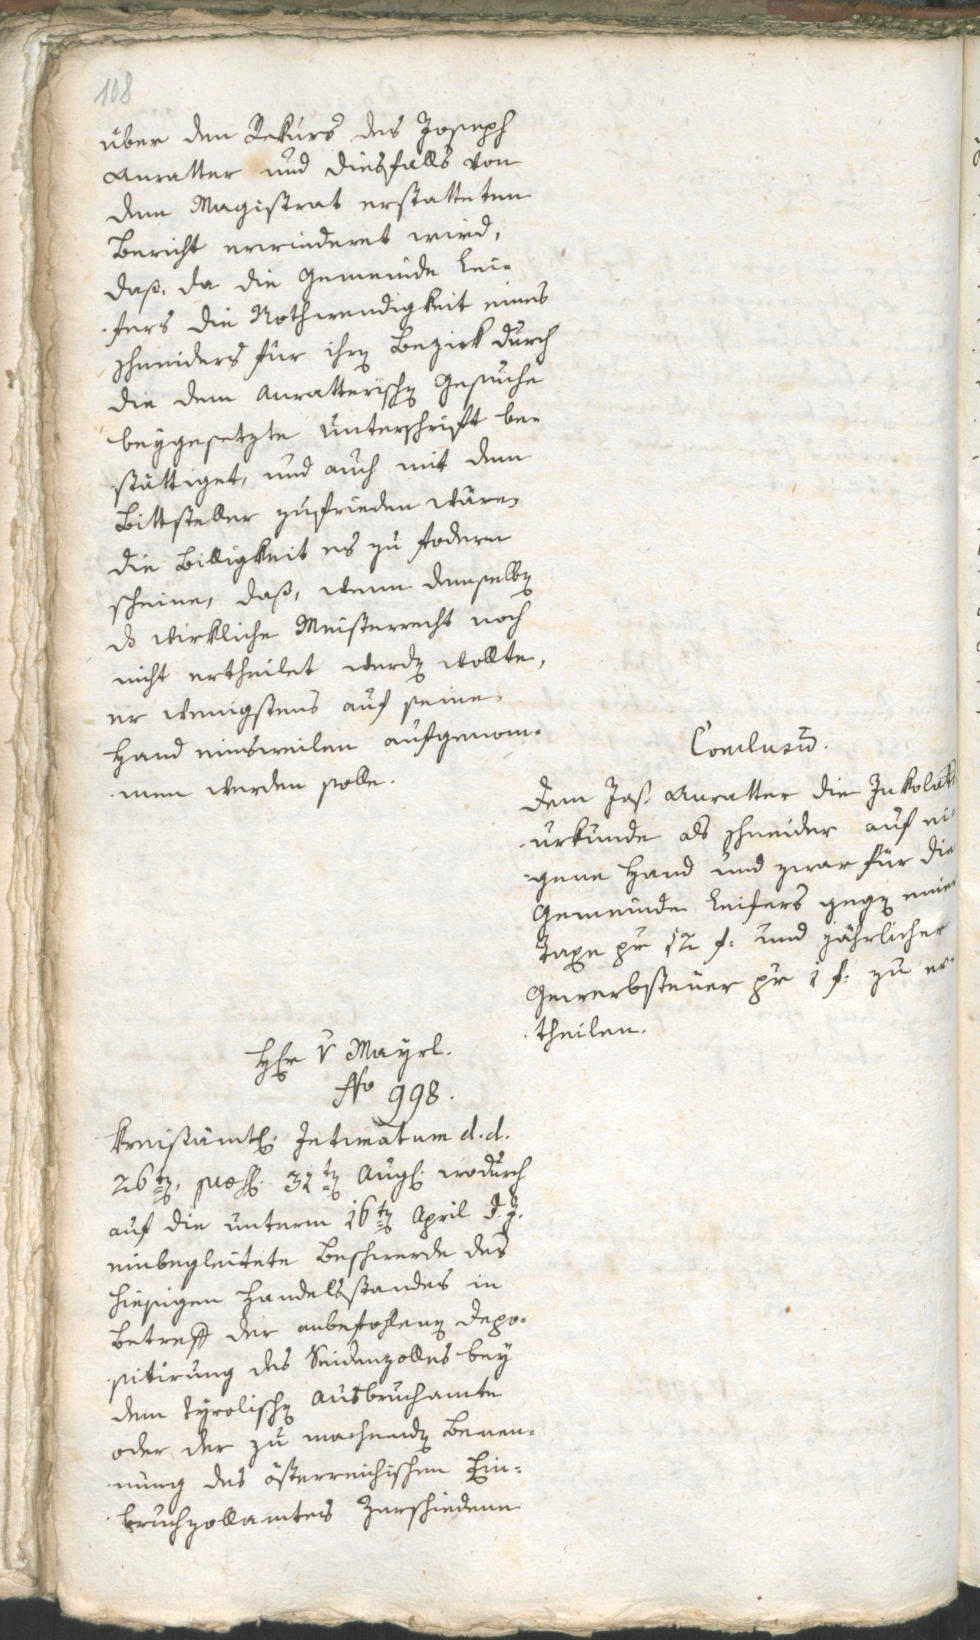 108
über den Rekurs des Joseph
Anratter und diesfalls von
dem Magistrat erstatteten
Bericht erwiederet wird,
daß, da die Gemeinde Lei-
fers die Nothwendigkeit eines
Schneiders für ihrn Bezirk durch
die dem Anratterischn Gesuche
beygesetzte Unterschrift be-
stättiget, und auch mit dem
Bittsteller zufrieden wäre,
die Billigkeit es zu fodern
scheine, daß, wenn demselbn
ds wirkliche Meisterrecht noch
nicht ertheilet werdn wollte,
er wenigstens auf seine
Hand einsweilen aufgenom-
men werden solle.
Conclusum.
Dem Jos. Anratter die Inkolats
urkunde als Schneider auf ei-
gene Hand und zwar für die
Gemeinde Leifers gegn eine
Taxe pr 12 f: und jährlicher
Gewerbsteuer pr 1 f: zu er-
theilen.
Hr v Mayrl.
No 998.
Kreisämtl. Intimatum d.d.
26tn, præs. 31tn Aug. wodurch
auf die unterm 16tn April d.J.
einbegleitete Beschwerde des
hiesigen Handelsstandes in
Betreff der anbefohlenn Depo-
sitirung des Seidenzolles bey
dem tyrolischn Ausbruchamte
oder der zu machendn Benen-
nung des österreichischen Ein-
bruchzollamtes Verschiedene